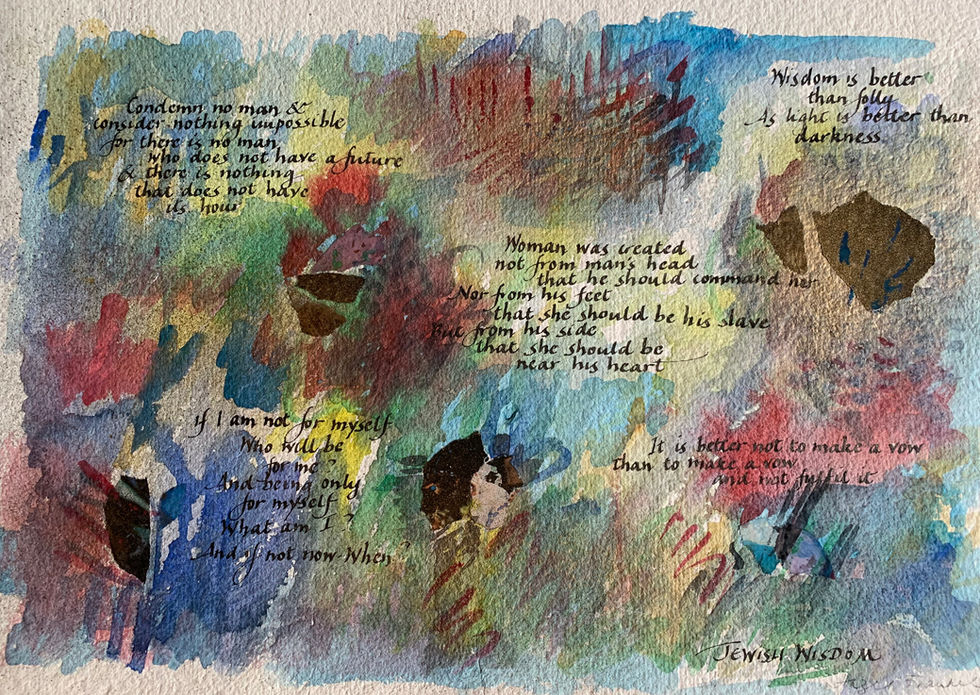 Condemn no man &
consider nothing unpossible
for there is no man
who does not have a future
& there is nothing
that does not have
its hour
Wisdom is better
than folly
As light is better than
darkness
Woman was created
not from man's head
that he should command her
Nor from his feet
that she should be his slave
But from his side
that she should be
near his heart
if I am not for myself
Who will be
for me?
And being only
for myself
What am I?
And if not now-When?
It is better not to make a vow
than to make a vow
and not fulfil it
JEWISH WISDOM